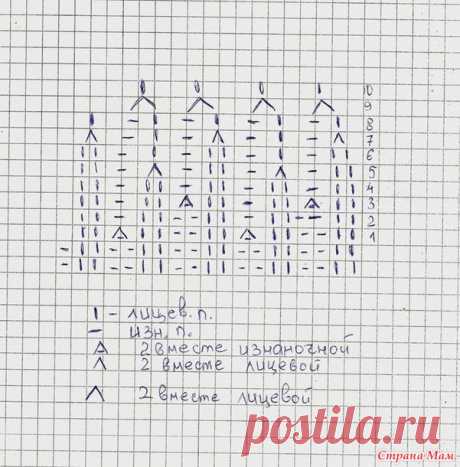 10
9
8
7
6
5
4
3
2
1
I - лицев. п.
— изн. п.
2 вместе изнаночной
2 вместе лицевой
2 вместе лицевой
postila.ru
Страна Мам.